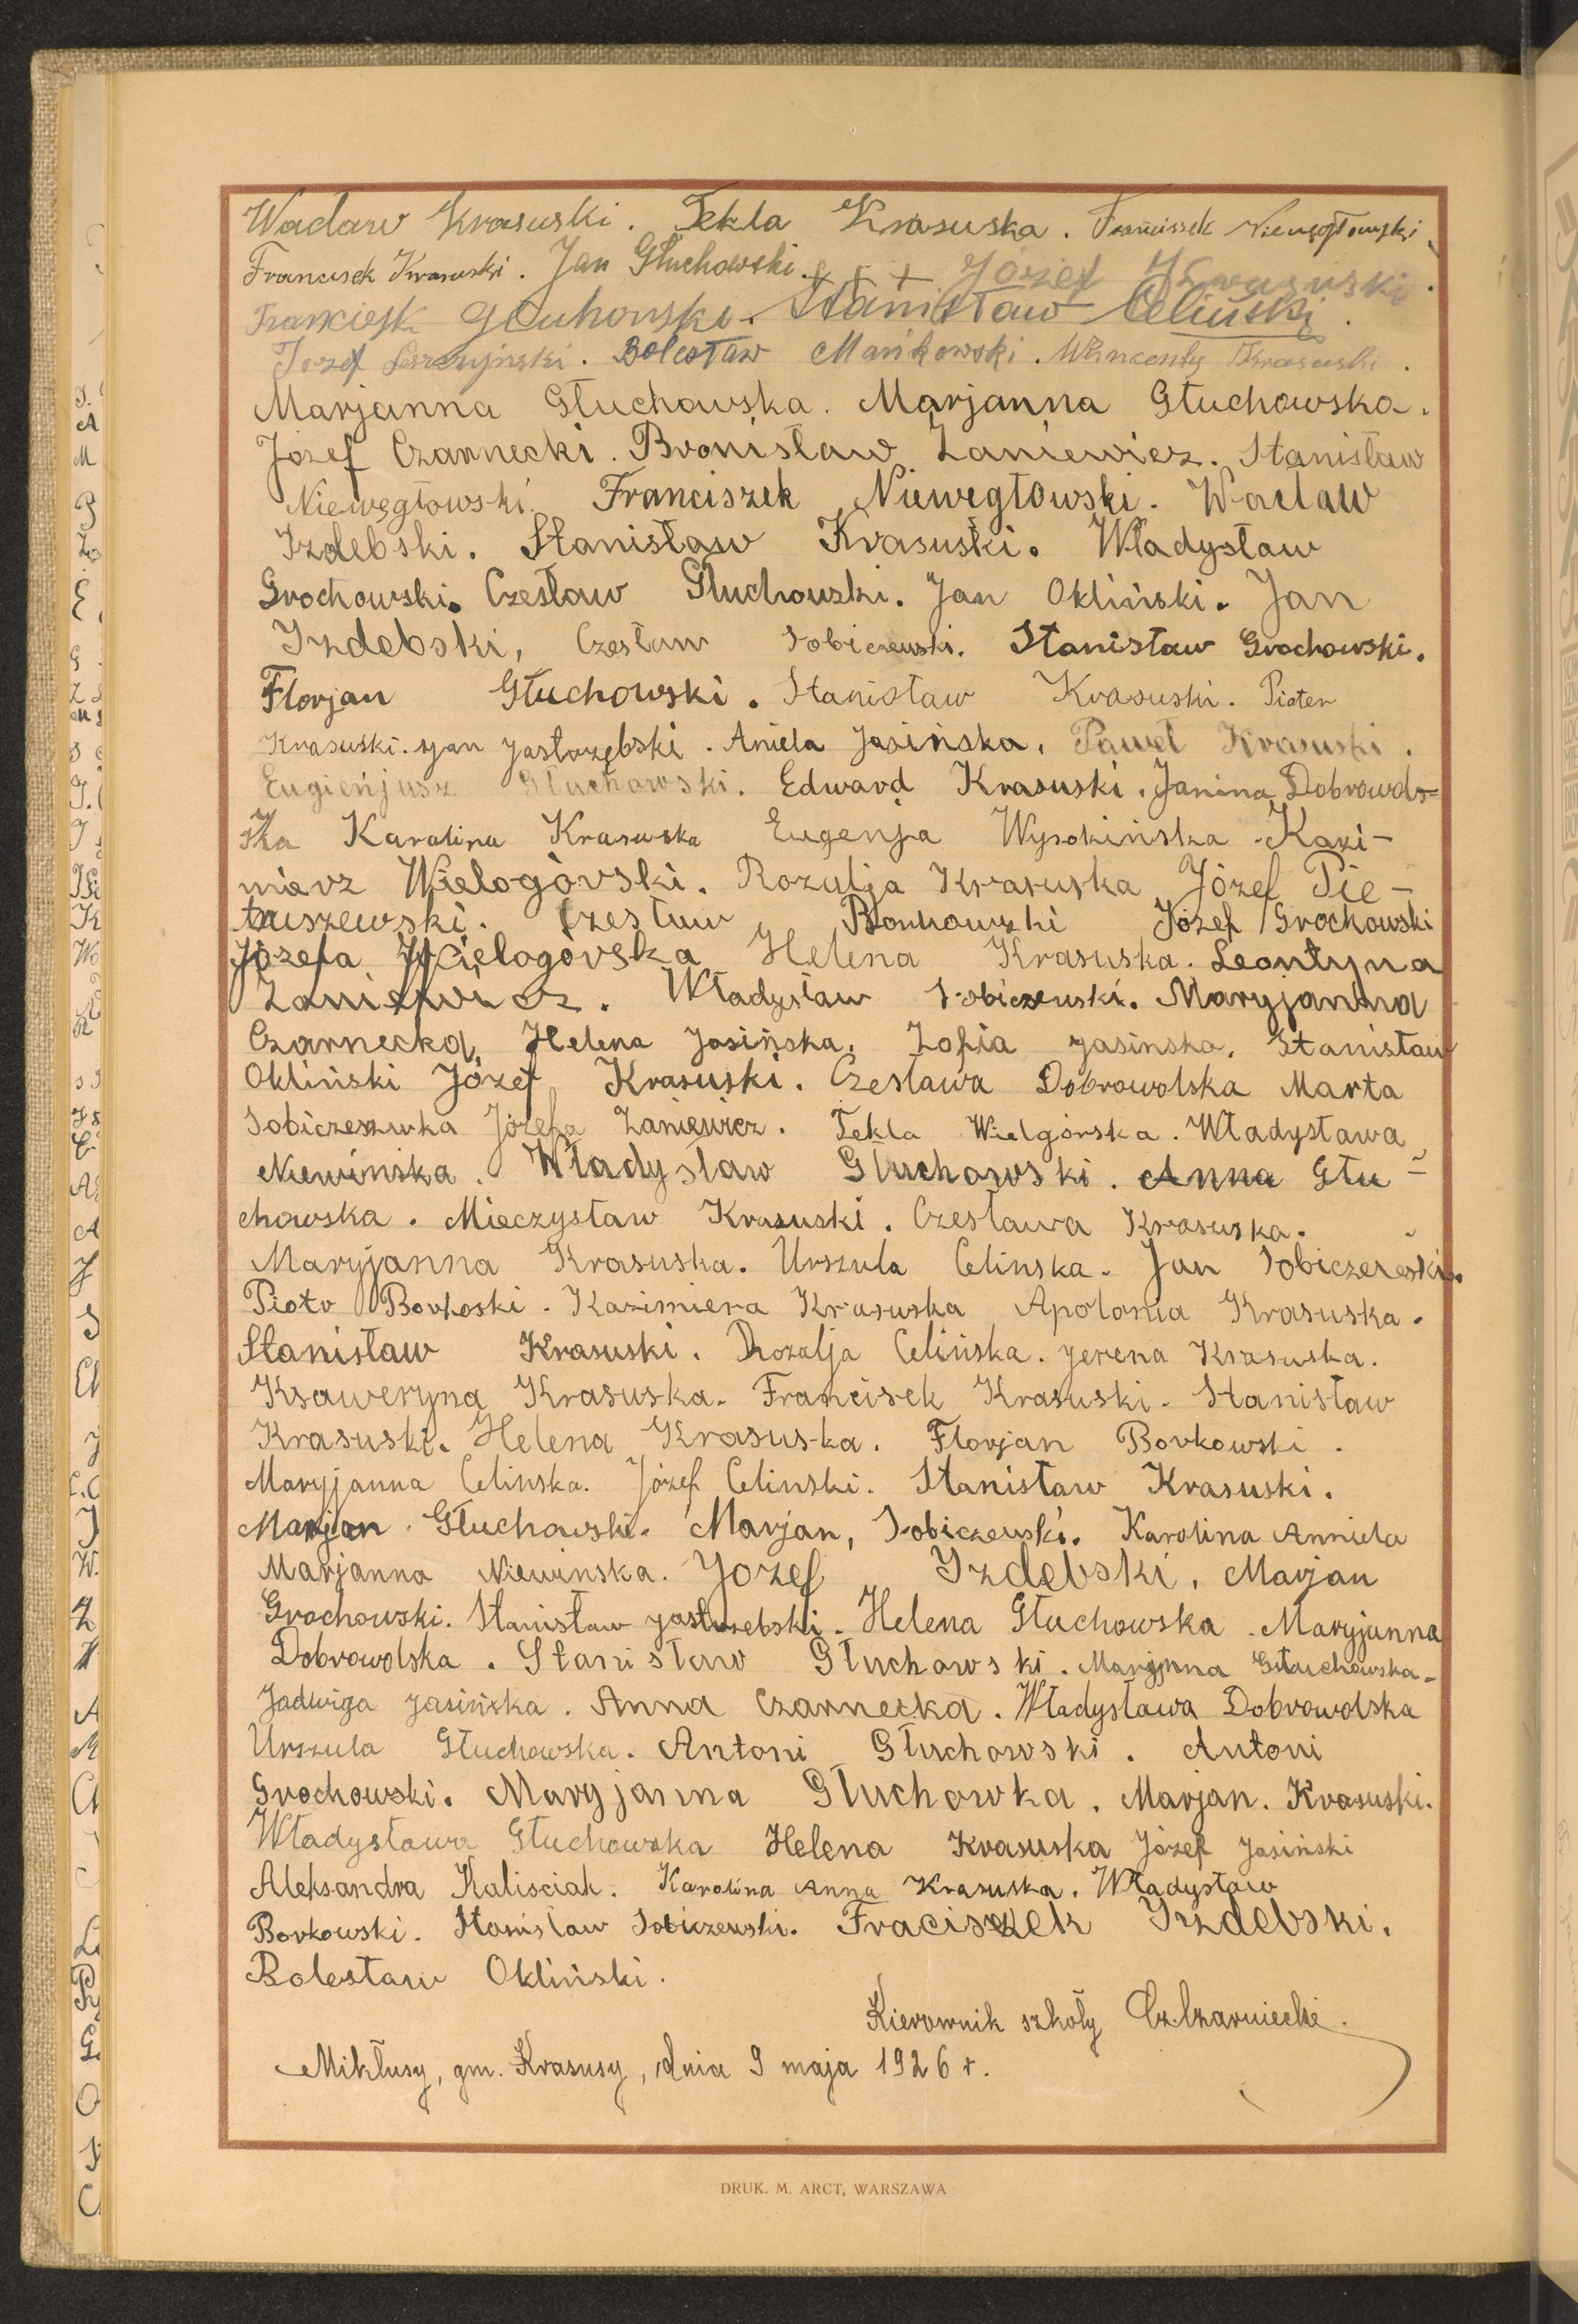 Wacław Krasuski. Tekla Krasuska. Franciszek Niewęgłowski
Francisek Krasuski. Jan Głuchowski. + + + Józef Krasuski.
Frankiesk Głuhowski. Stanisław Celiński.
Jozef Leszczyński. Bolesław Mańkowski. Wincenty Krasuski.
Marjanna Głuchowska. Marjanna Głuchowska.
Józef Czarnecki. Bronisław Zaniewicz. Stanisław
Niewęgłowski. Franciszek Niewegłowski. Wacław
Izdebski. Stanisław Krasuski. Władysław
Grochowski. Czesław Głuchowski. Jan Okliński. Jan
Izdebski, Czesław Sobiczewski. Stanisław Grochowski.
Florjan Głuchowski. Stanisław Krasuski. Pioter
Krasuski. Jan Jastrzębski. Aniela Jasińska. Paweł Krasuski.
Eugieńjusz Głuchowski. Edward Krasuski. Janina Dobrowols-
ska Karolina Krasuska Eugenja Wysokińska. Kazi-
mierz Wielogórski. Rozalja Krasuska Józef Pie-
truszewski. Czesław Borkowski Józef Grochowski
Józefa Wielogórska Helena Krasuska. Leontyna
Zaniewicz. Władysław Sobiczewski. Maryjanna
Czarnecka, Helena Jasińska. Zofia Jasinska. Stanisław
Okliński Józef Krasuski. Czesława Dobrowolska Marta
Sobiczeszwka Józefa Zaniewicz. Tekla Wielgórska. Władysława
Niewińska. Władysław Głuchowski. Anna Głu-
chowska. Mieczysław Krasuski. Czesława Krasuska.
Maryjanna Krasuska. Urszula Celinska. Jan Sobiczewski.
Piotr Borkoski. Kazimiera Krasuska Apolonia Krasuska.
Stanisław Krasuski. Rozalja Celińska. Jerena Krasuska.
Ksaweryna Krasuska. Francisek Krasuski. Stanisław
Krasuski. Helena Krasuska. Florjan Borkowski.
Maryjanna Celinska. Józef Celinski. Stanisław Krasuski.
Marjan Głuchowski. Marjan, Sobiczewski. Karolina Anniela
Marjanna Niewinska. Jozef Izdebski. Marjan
Grochowski. Stanisław Jastrzebski. Helena Głuchowska. Maryjanna
Dobrowolska. Stanisław Głuchowski. Maryjnna Głuchowska.
Jadwiga Jasińska. Anna Czarnecka. Władysława Dobrowolska
Urszula Głuchowska. Antoni Głuchowski. Antoni
Grochowski. Maryjanna Głuchowka. Marjan. Krasuski.
Władysława Głuchowska Helena Krasuska Józef Jasiński
Aleksandra Kaliściak. Karolina Anna Krasuska. Władysław
Borkowski. Stanisław Sobiczewski. Fraciszek Izdebski.
Bolesław Okliński.
Kierownik szkoły Cz. Czarniecki.
Mikłusy, gm. Krasusy, dnia 9 maja 1926 r.
DRUK. M. ARCT, WARSZAWA